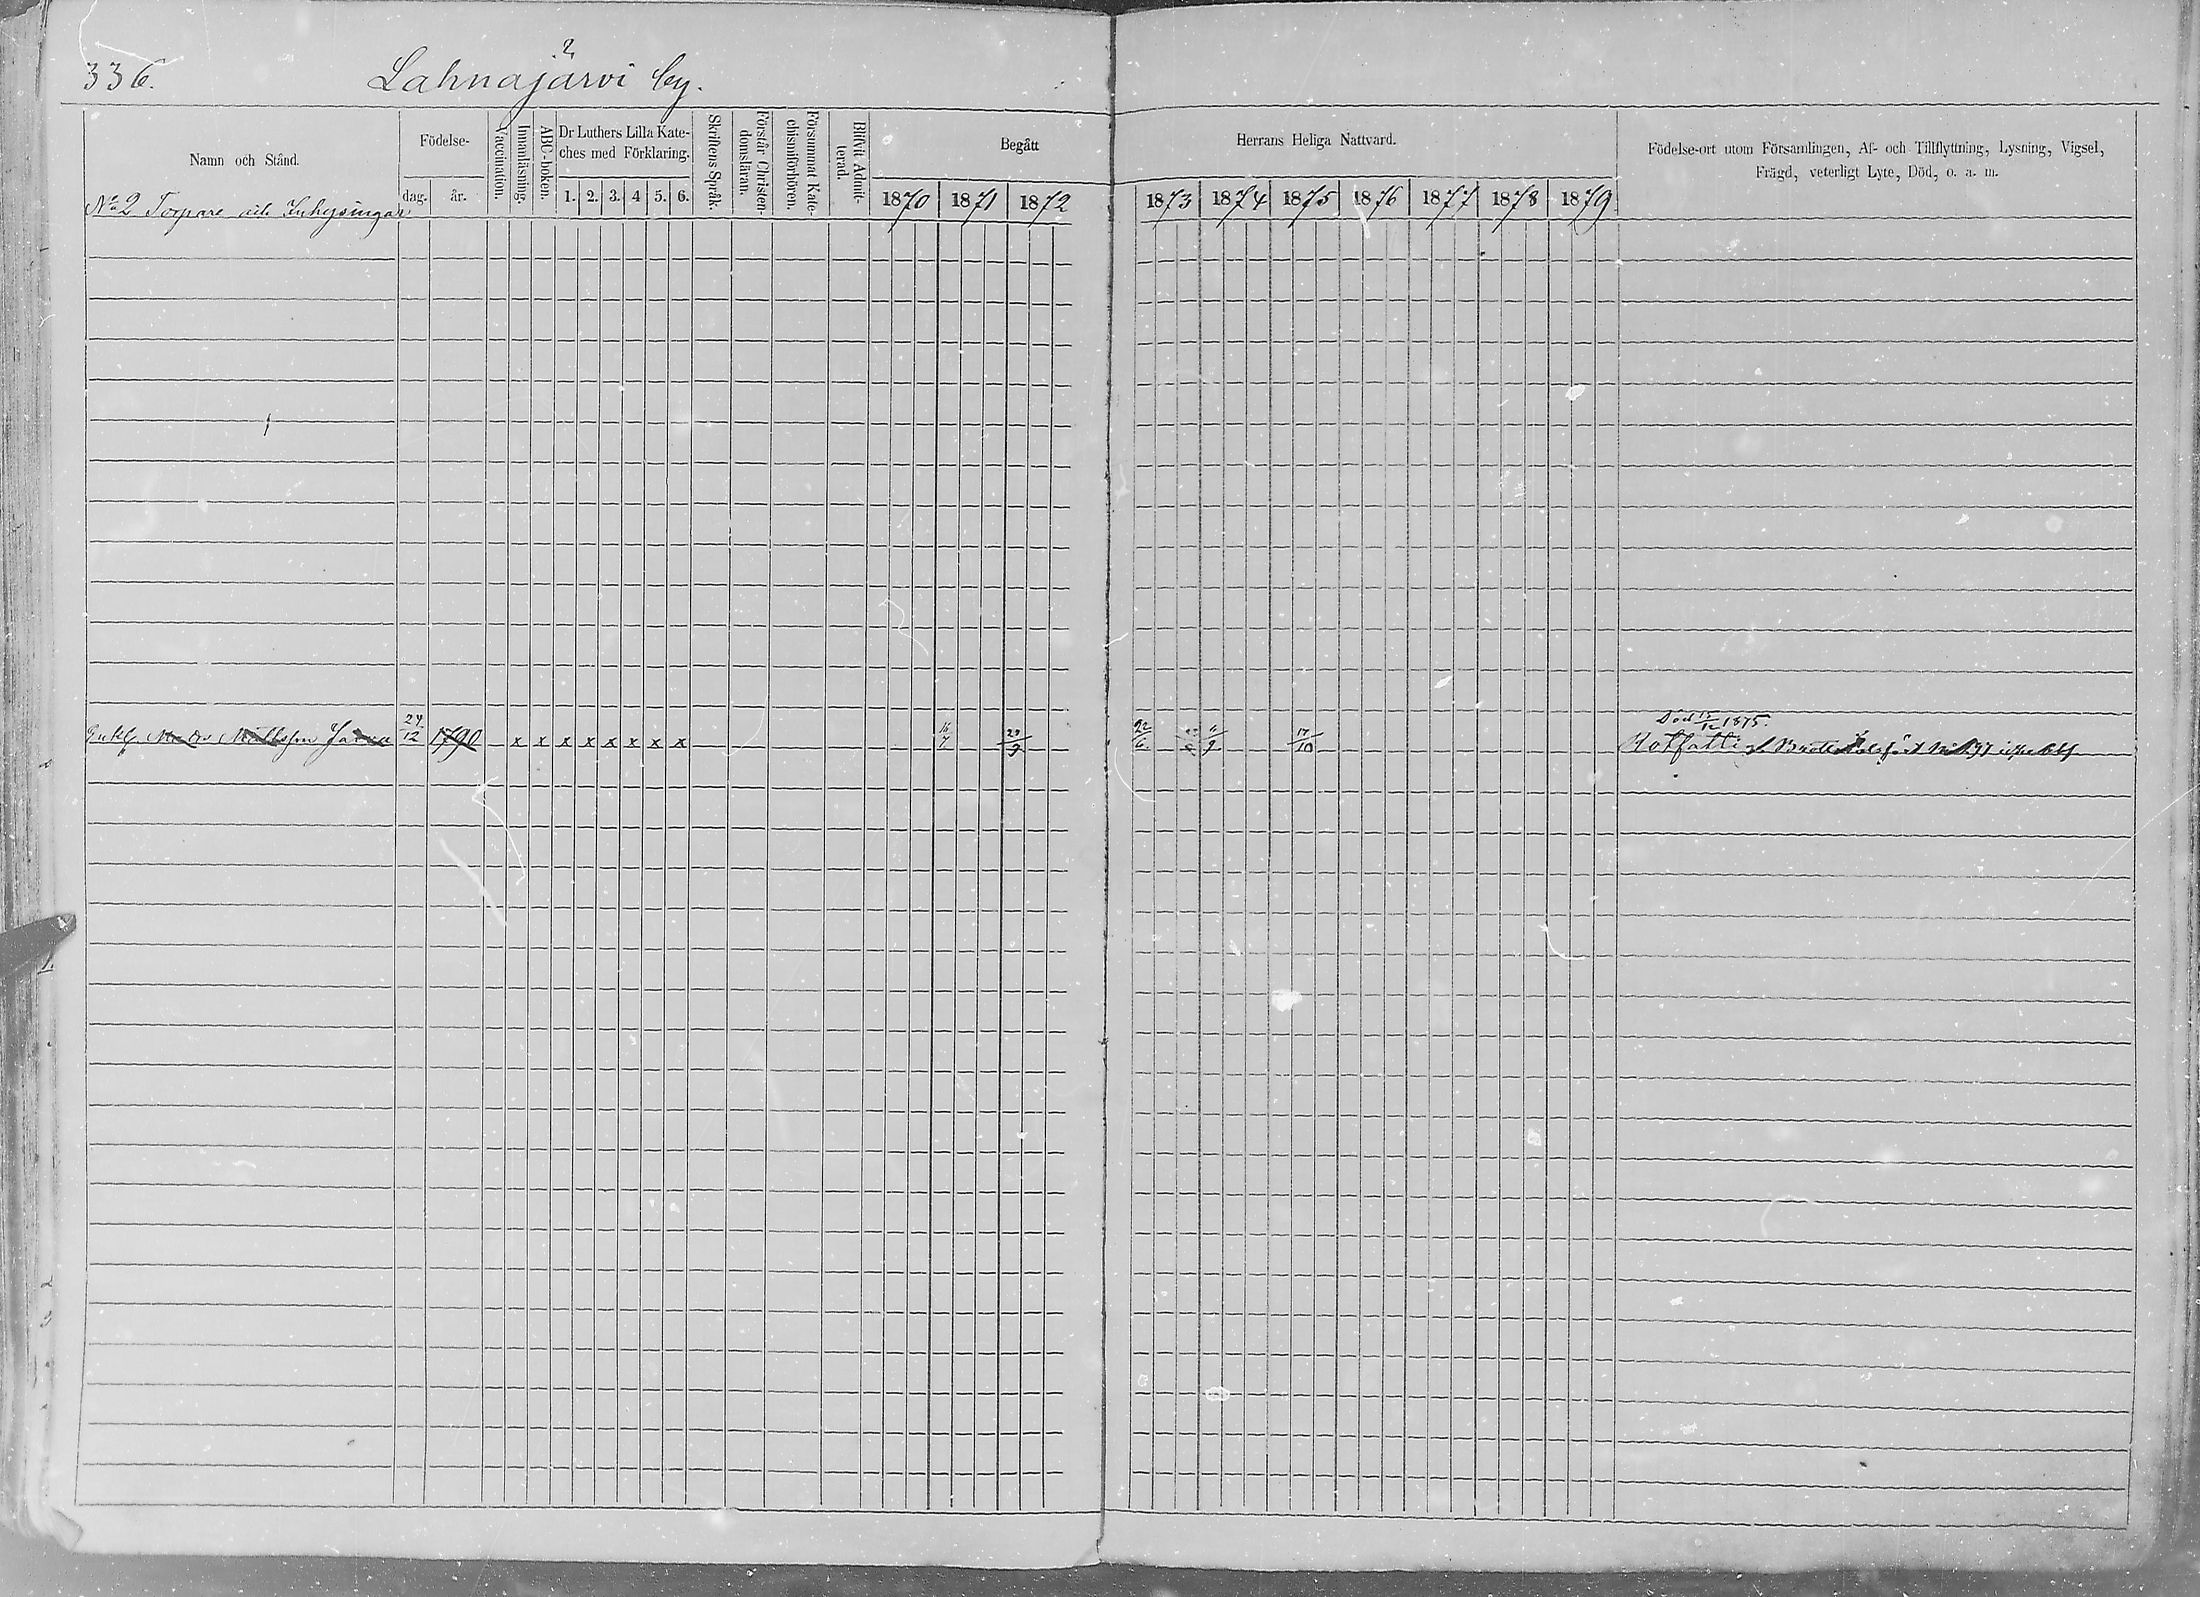 336.
2
Lahnajärvi by.
Namn och Stånd.
Födelse-
dag.
år.
Vaccination.
Innanläsning.
ABC-boken.
Dr Luthers Lilla Kate-
ches med Förklaring.
1. 2. 3. 4 5. 6.
Skriftens Språk.
Förstår Christen-
domsläran.
Försummat Kate-
chismiförhören.
Blifvit Admit-
terad.
Begått
Herrans Heliga Nattvard.
1870 1871 1872
1873 1874 1875 1876 1877 1878 1879
Födelse-ort utom Församlingen, Af- och Tillflyttning, Lysning, Vigsel,
Frägd, veterligt Lyte, Död, o. a. m.
No 2 Torpare och Inhysingar
Enkl. Mattsson 24/12 1790 x x x x x x x x 16/7 29/9 22/6 17/10
Död 1875.
Rotfattig